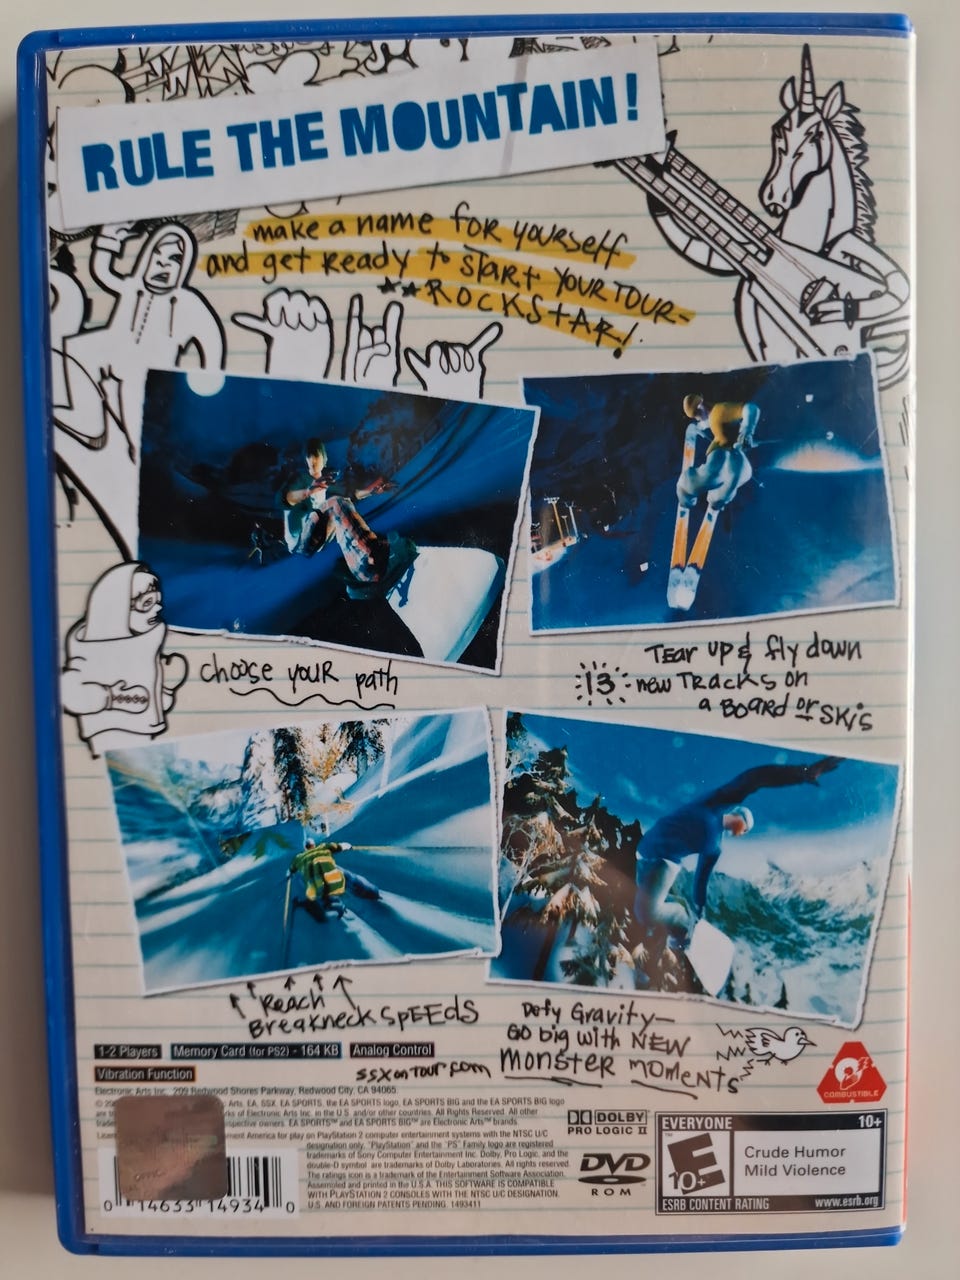 RULE THE MOUNTAIN!
make a name for yourself
and get ready to start your tour-
ROCKSTAR!
choose your path
Tear up & fly down
13 new tracks on
a board or skis
Reach
Breakneck speeds
Defy Gravity—
Go big with NEW
Monster moments
ssxontour.com
1-2 Players
Memory Card (for PS2) - 164 KB
Analog Control
Vibration Function
Electronic Arts Inc., 209 Redwood Shores Parkway, Redwood City, CA 94065.
Arts. EA, SSX, EA SPORTS, the EA SPORTS logo, EA SPORTS BIG and the EA SPORTS BIG logo
are of Electronic Arts Inc. in the U.S. and/or other countries. All Rights Reserved. All other
respective owners. EA SPORTS™ and EA SPORTS BIG™ are Electronic Arts™ brands.
America for play on PlayStation 2 computer entertainment systems with the NTSC U/C
designation only. "PlayStation" and the "PS" Family logo are registered
trademarks of Sony Computer Entertainment Inc. Dolby, Pro Logic, and the
double-D symbol are trademarks of Dolby Laboratories. All rights reserved.
The ratings icon is a trademark of the Entertainment Software Association.
Assembled and printed in the U.S.A. THIS SOFTWARE IS COMPATIBLE
WITH PLAYSTATION 2 CONSOLES WITH THE NTSC U/C DESIGNATION.
U.S. AND FOREIGN PATENTS PENDING. 1493411
0 14633 14934 0
DOLBY
PRO LOGIC II
DVD
ROM
COMBUSTIBLE
EVERYONE 10+
E
10+
Crude Humor
Mild Violence
ESRB CONTENT RATING www.esrb.org